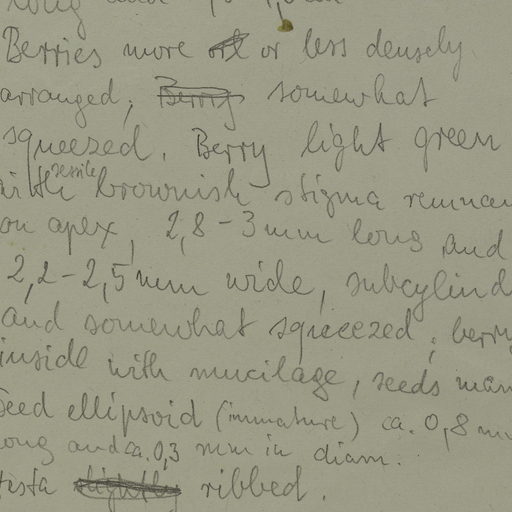 long
Berries more or less densely
arranged; Berry somewhat
squeezed. Berry light green
with sessile brownish stigma remnan
on apex, 2,8-3 mm long and
2,2-2,5 mm wide, subcylind
and somewhat squeezed; berry
inside with mucilage, seeds man
Seed ellipsoid (immature) ca. 0,8 mm
long and ca. 0,3 mm in diam.
testa slightly ribbed.